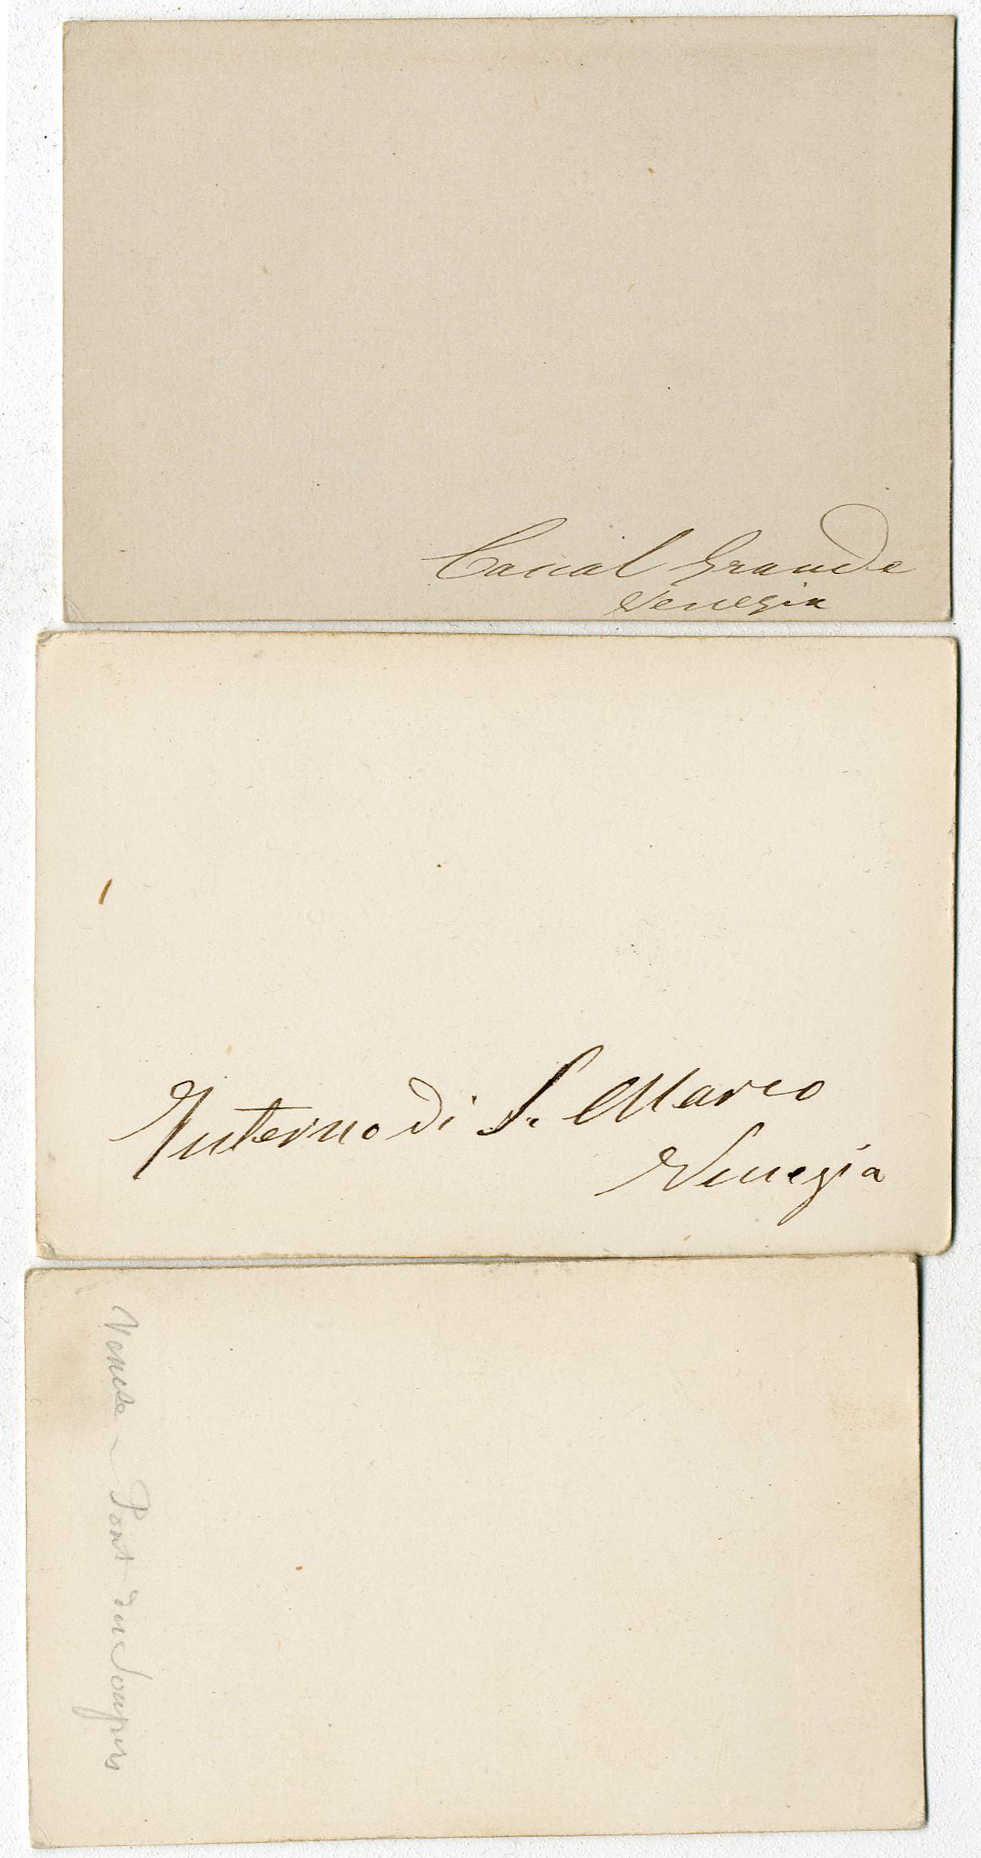 Canal Grande
Venezia
Interno di S. Marco
Venezia
Venise - Pont des Soupirs